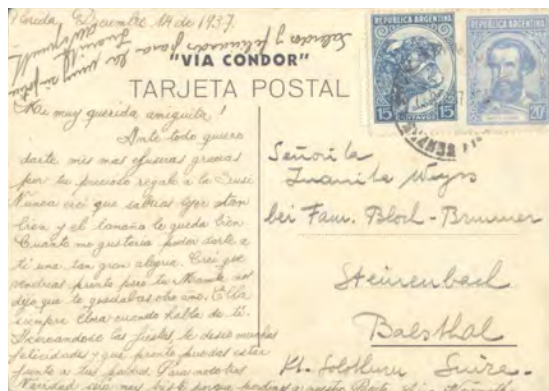 Florida, Diciembre 14 de 1937.
"VIA CONDOR"
TARJETA POSTAL
REPUBLICA ARGENTINA
15 CENTAVOS 15
REPUBLICA ARGENTINA
20
Mi muy querida amiguita!
Ante todo quiero
darte mis mas efusivas gracias
por tu precioso regalo a la Susi
Nunca creí que sabías tejer tan
bien y el tamaño le queda bien
Cuanto me gustaria poder darte a
ti una tan gran alegria. Creí que
vendrias pronto pero tu Mamita nos
dijo que te quedabas otro año. Ella
siempre llora cuando habla de ti.
Acercandose las fiestas, te deseo muchas
felicidades y que pronto puedas estar
junto a tus padres. Para nosotros
Navidad será muy triste porque
Señorita
Juanita Wyss
bei Fam. Bloch-Brunner
Steinenbach
Balsthal
Kt. Solothurn Suiza.-
Saludos y felicidades para